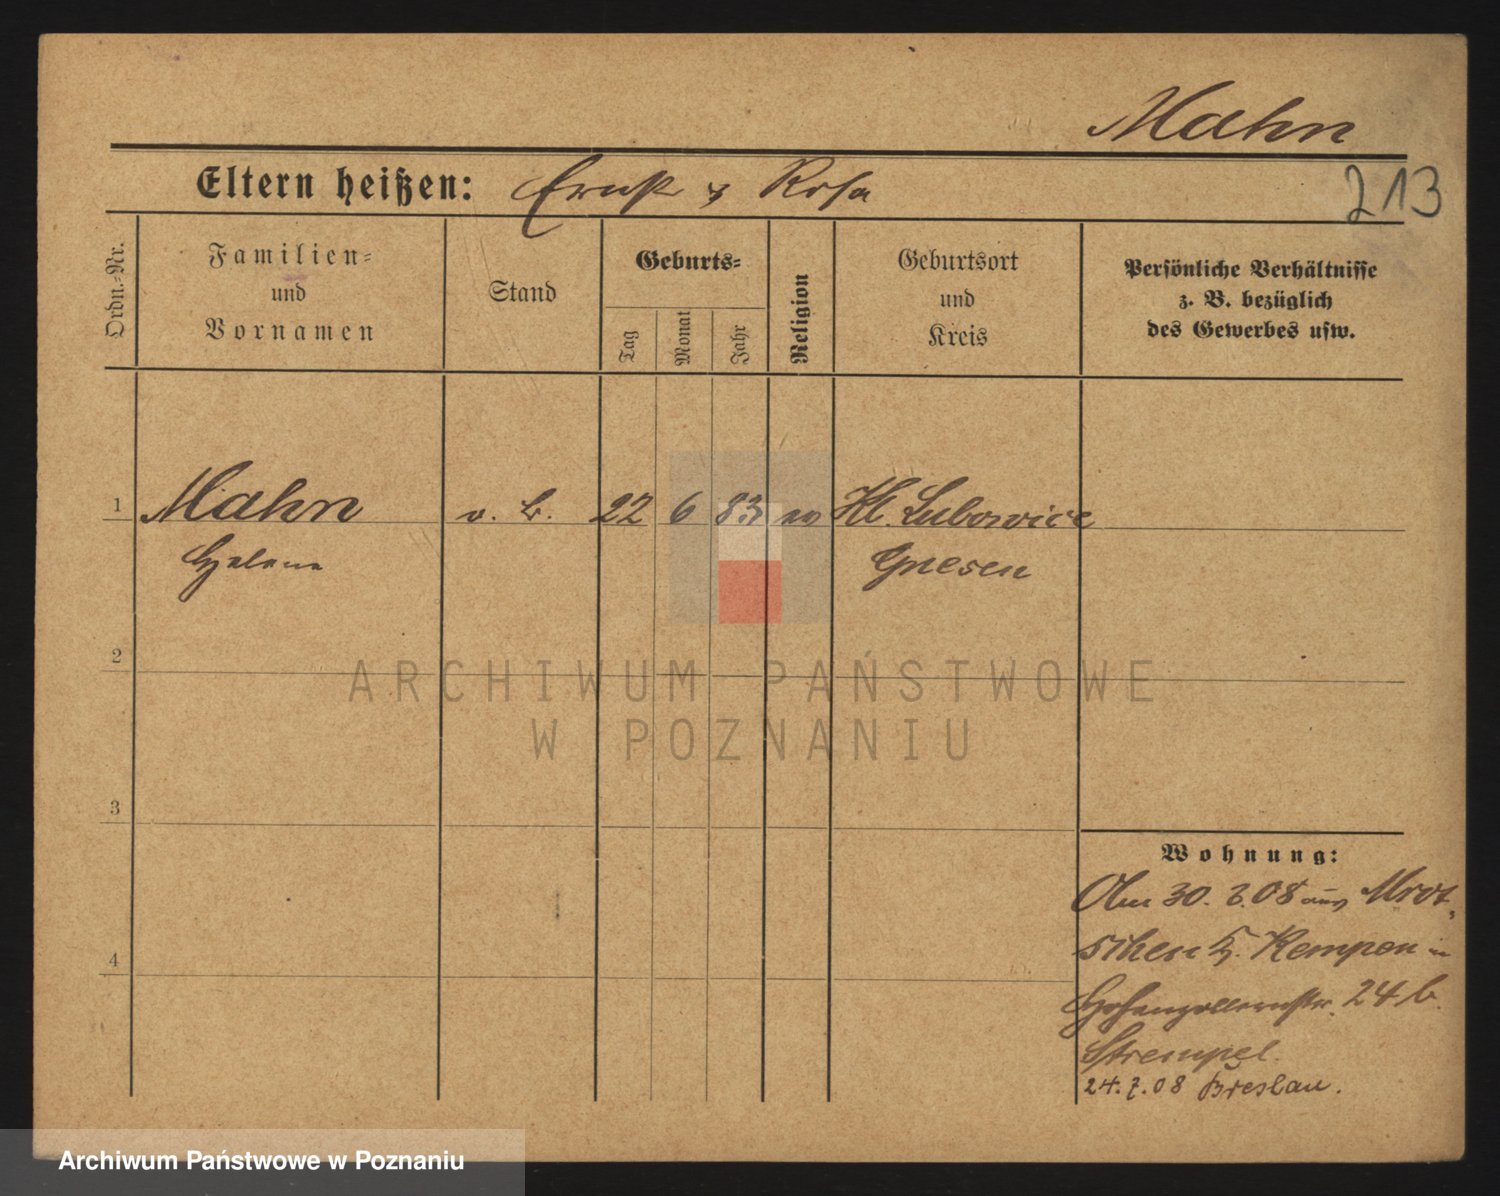 Mahn
Eltern heißen: Ernst & Rosa
213
Ordn.=Nr.
Familien=
und
Vornamen
Stand
Geburts=
Tag
Monat
Jahr
Religion
Geburtsort
und
Kreis
Persönliche Verhältnisse
z. B. bezüglich
des Gewerbes usw.
1 Mahn o. B. 22 6 83 ev Kl. Lubowice
Helene Gnesen
2
3
4
Wohnung:
Am 30. 3. 08 aus Mrot-
schen K. Kempen in
Hohenzollernstr. 24 b.
Strempel.
24.7.08 Breslau.
ARCHIWUM PAŃSTWOWE
W POZNANIU
Archiwum Państwowe w Poznaniu